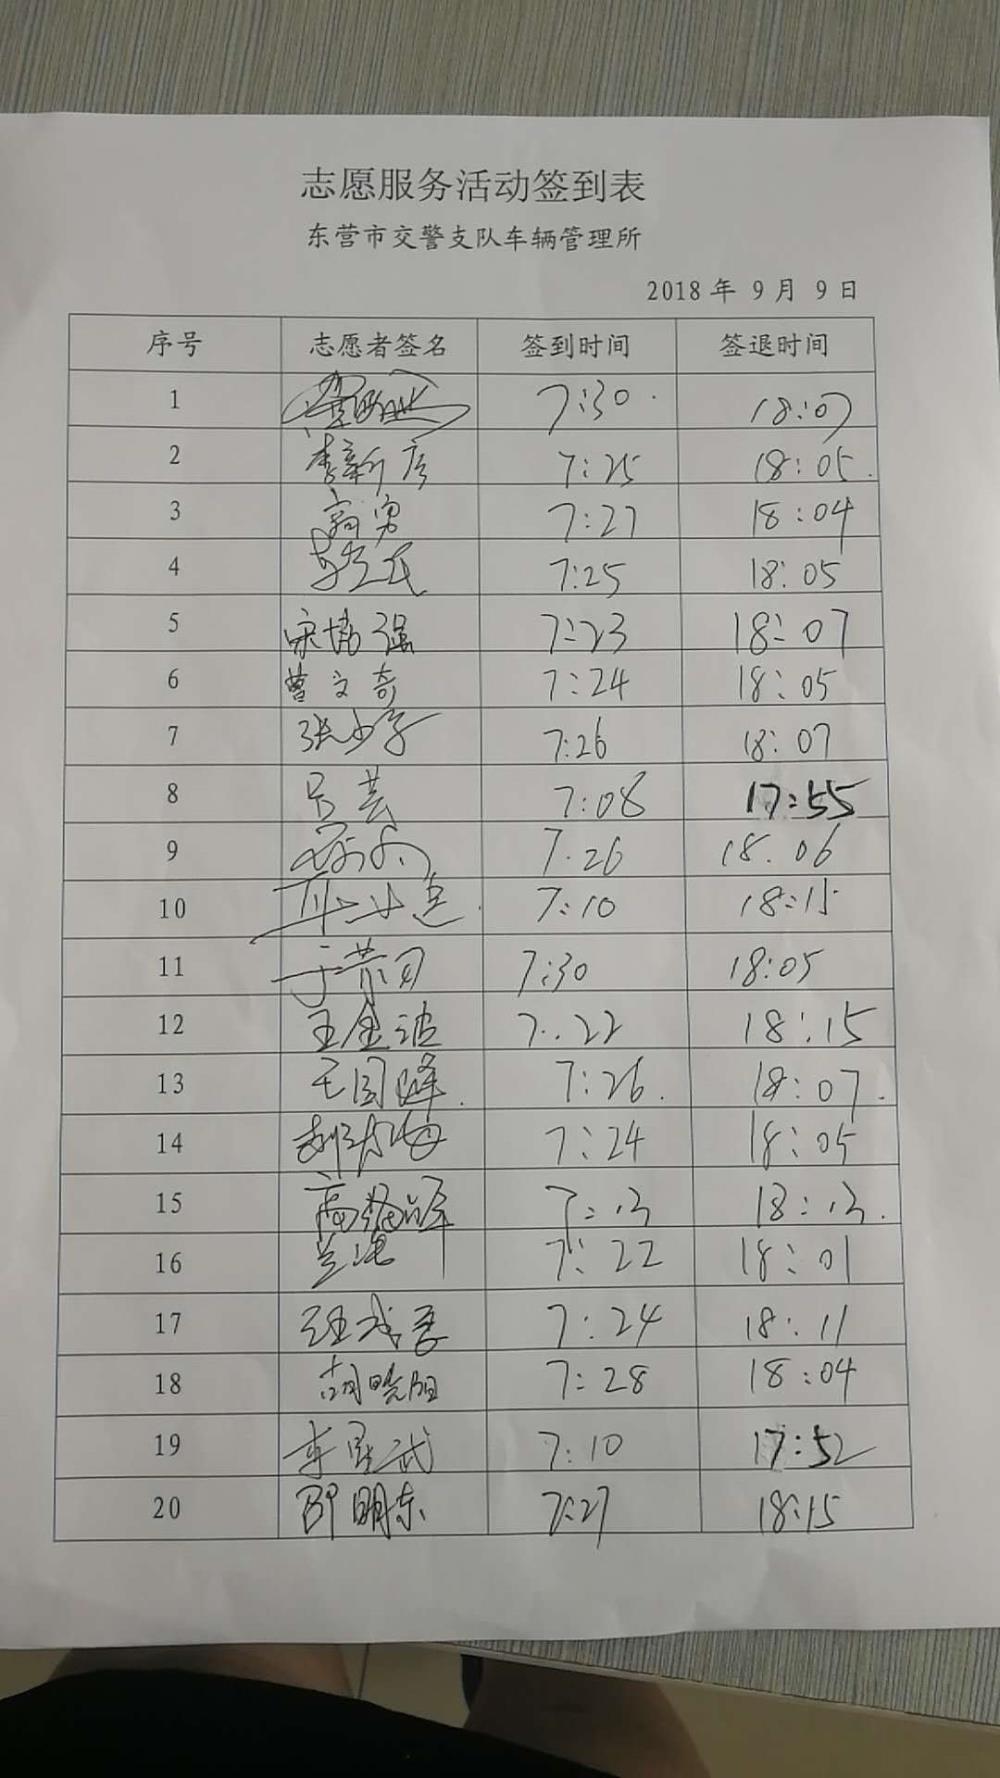 志愿服务活动签到表
东营市交警支队车辆管理所
2018 年 9 月 9 日
序号 志愿者签名 签到时间 签退时间
1 7:30 18:07
2 李新房 7:25 18:05
3 7:27 18:04
4 7:25 18:05
5 宋增强 7:23 18:07
6 曹文奇 7:24 18:05
7 张少子 7:26 18:07
8 吕芸 7:08 17:55
9 7.26 18.06
10 7:10 18:15
11 7:30 18:05
12 王金波 7:22 18:15
13 王国峰 7:26 18:07
14 7:24 18:05
15 7:13 18:13
16 兰港 7:22 18:01
17 7:24 18:11
18 胡晓阳 7:28 18:04
19 7:10 17:52
20 邵明东 7:27 18:15